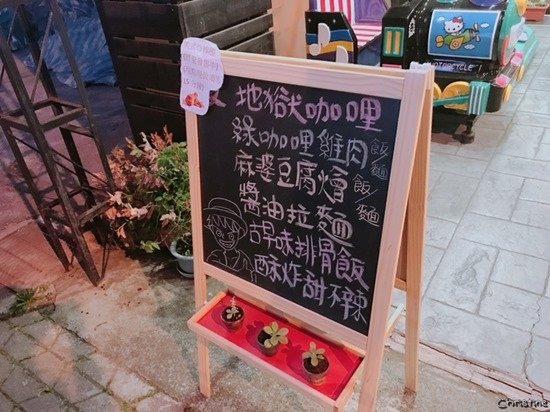 地獄咖哩
綠咖哩雞肉飯/麵
麻婆豆腐燴飯/麵
醬油拉麵
古早味排骨飯
酥炸甜不辣
MOTORCYCLE
Christina